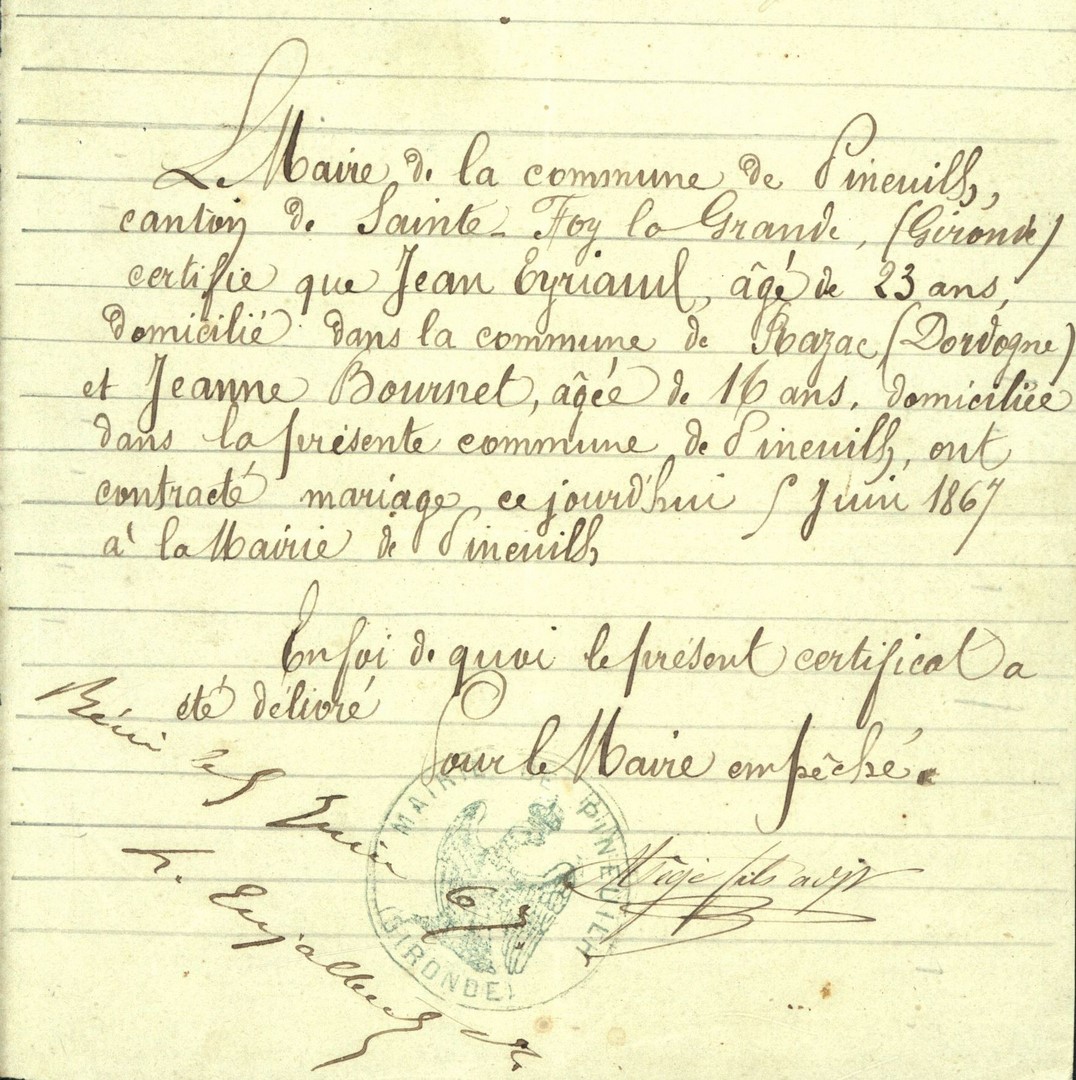 Le Maire de la commune de Pineuilh,
canton de Sainte-Foy la Grande, (Gironde)
certifie que Jean Eyriaud, âgé de 23 ans,
domicilié dans la commune de Razac (Dordogne)
et Jeanne Bournet, agée de 16 ans, domiciliée
dans la présente commune de Pineuilh, ont
contracté mariage, ce jourd'hui 5 Juin 1867
à la Mairie de Pineuilh
En foi de quoi le présent certificat a
été délivré
Pour le Maire empêché.
MAIRIE DE PINEUILH
(GIRONDE)
fils adjt
Béni le 5 Juin 67